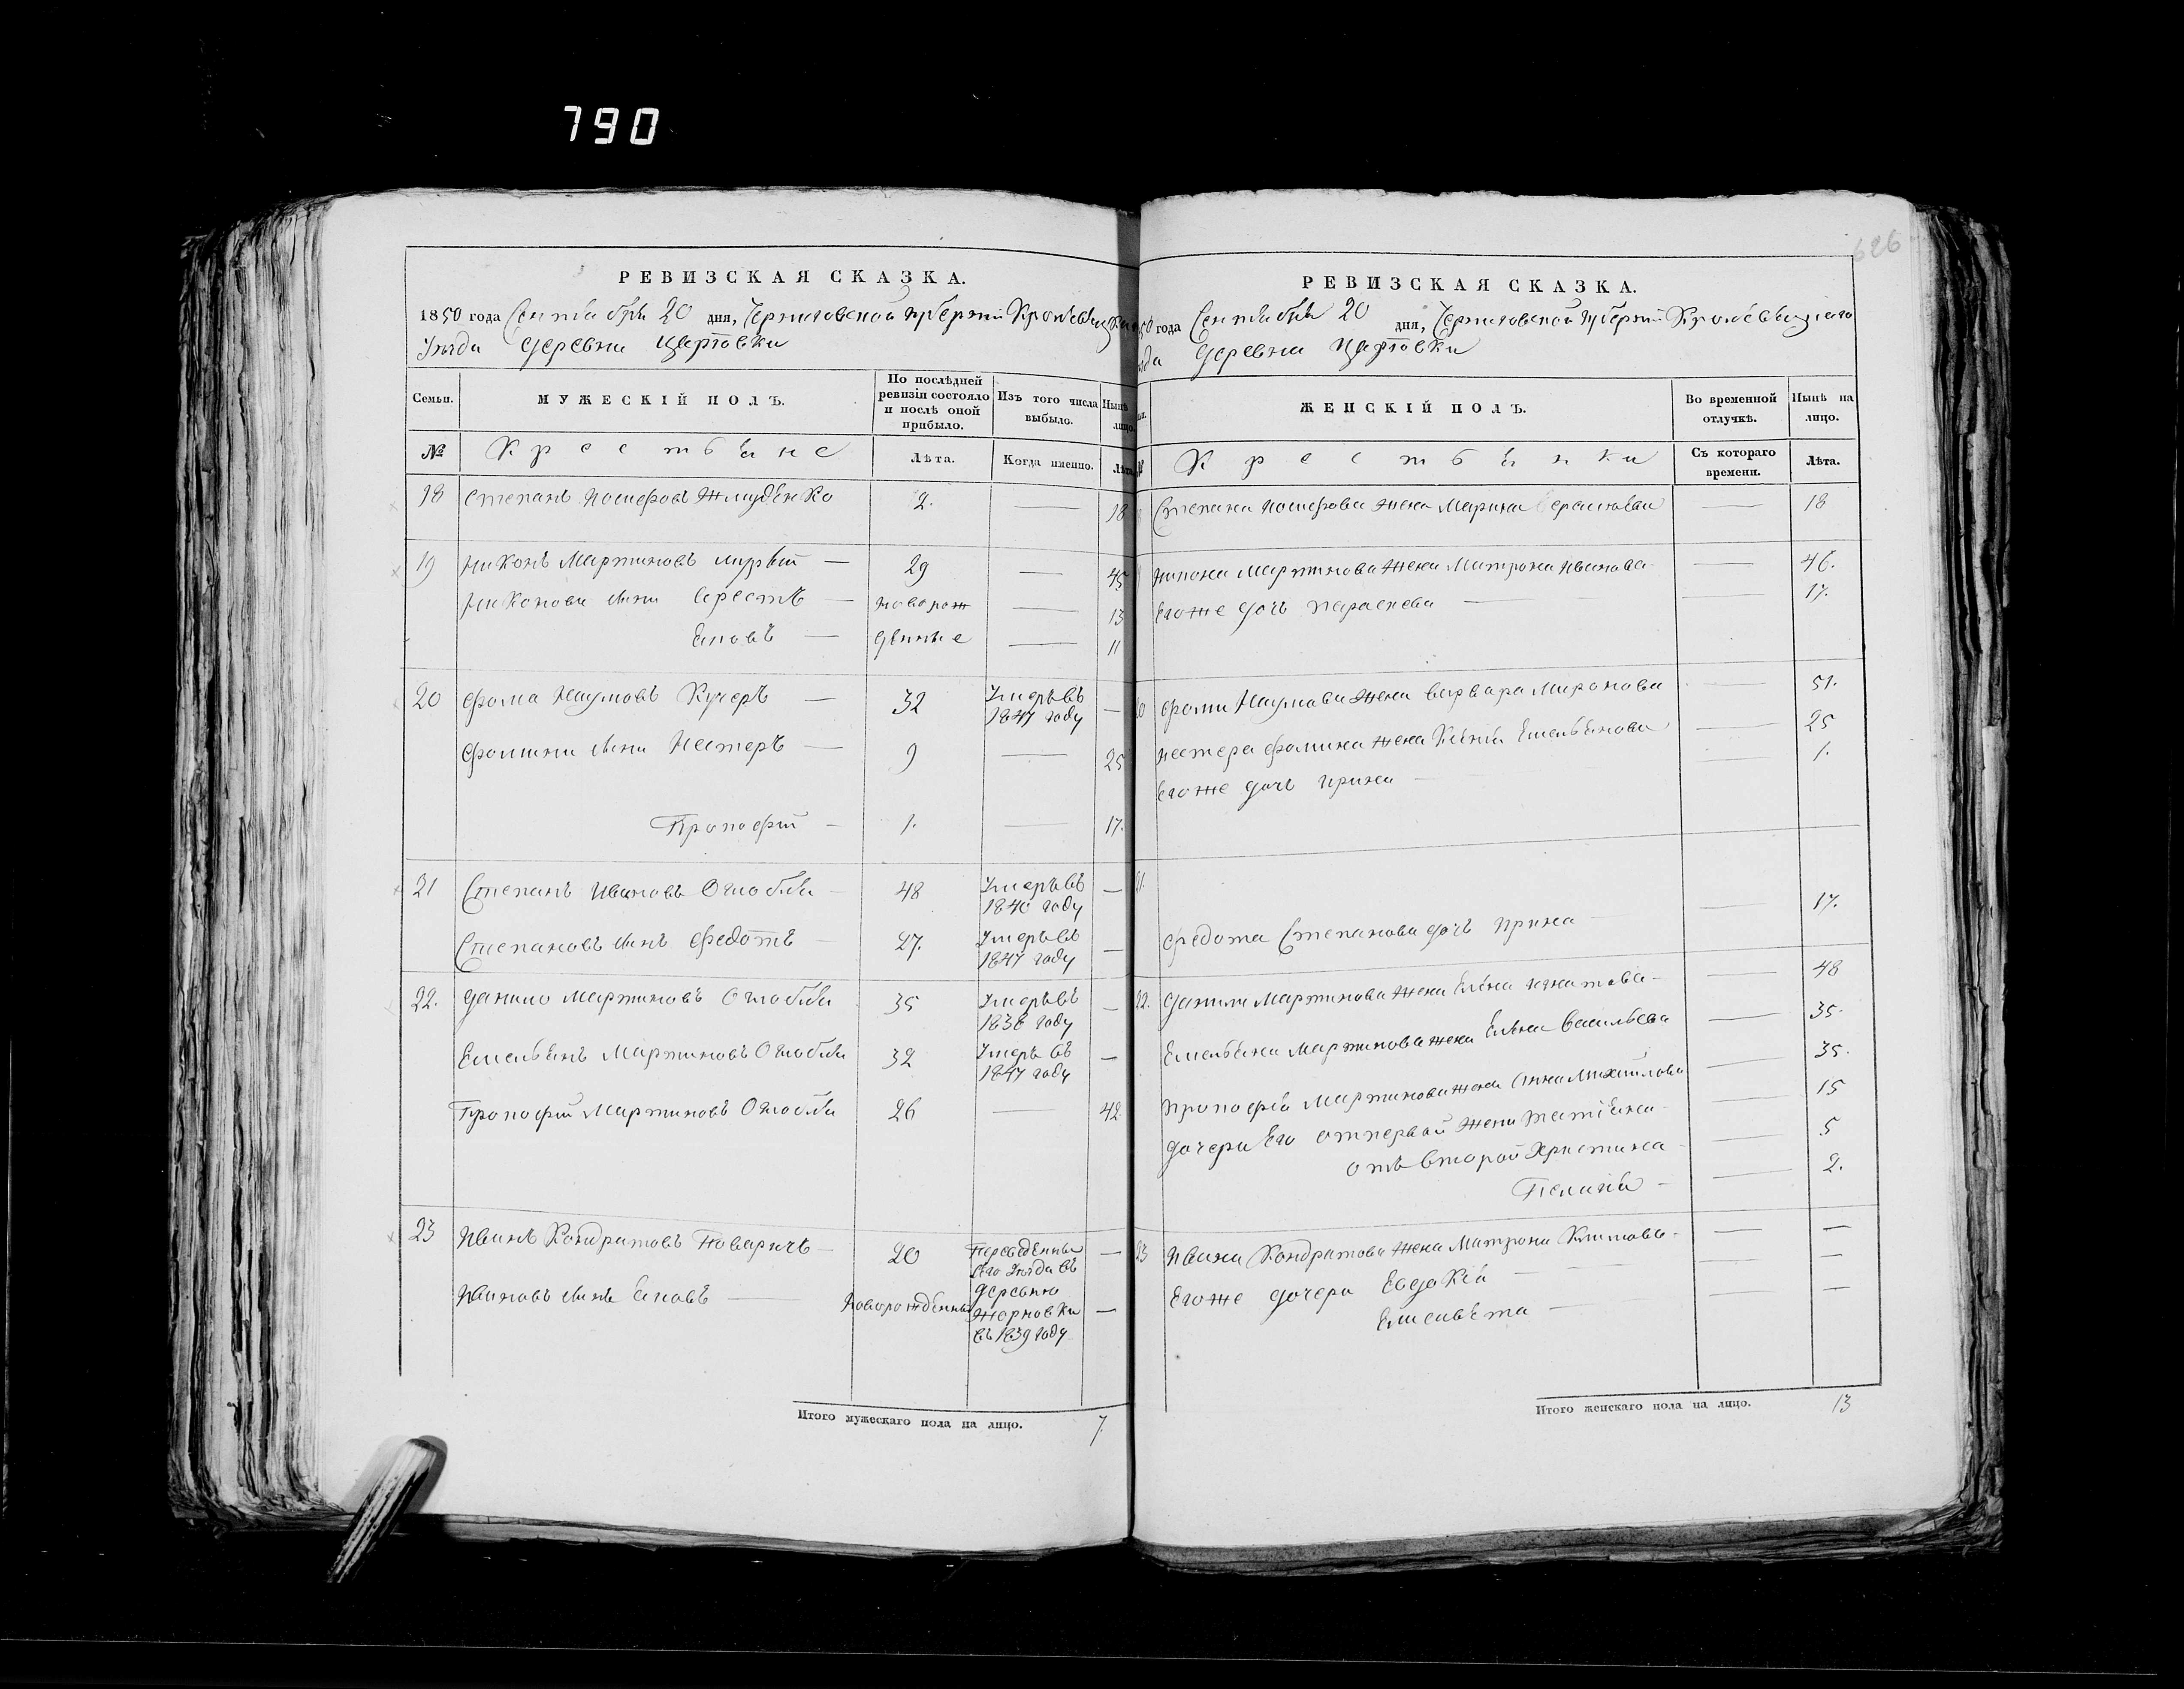 790
626
РЕВИЗСКАЯ СКАЗКА.
1850 года Сентября 20 дня, Черниговской Губерніи Кролевецкаго
Уѣзда Деревни
Семьи.
МУЖЕСКІЙ ПОЛЪ.
По послѣдней ревизіи состояло и послѣ оной прибыло.
Изъ того числа выбыло.
Нынѣ на лицо.
№
Крестьяне
Лѣта.
Когда именно.
Лѣта.
18 Степанъ Иосифовъ Жмуденко 2. — 18
19 Никонъ Мартиновъ — 29 — 45
Никонови сыни Орестъ — новорож — 13
Яковъ — денные — 11
20 Фома Наумовъ Кучеръ — 32 Умеръ въ 1847 году —
Фомини сыни Нестеръ — 9 — 25
Прокофій — 1. — 17.
21 Степанъ Ивановъ Оглобля — 48 Умеръ въ 1840 году —
Степановъ сынъ Федотъ — 27. Умеръ въ 1847 году —
22. Данило Мартиновъ Оглобля 35 Умеръ въ 1838 году —
Емельянъ Мартиновъ Оглобля 32 Умеръ въ 1847 году —
Прокофій Мартиновъ Оглобля 26 — 42.
23 Иванъ Кондратовъ Поваричъ — 20 Переведенны
Ивановъ сынъ Яковъ — новорожденны
его Уѣзда въ деревню Жерновки въ 1839 году —
Итого мужескаго пола на лицо. 7
РЕВИЗСКАЯ СКАЗКА.
50 года Сентября 20 дня, Черниговской Губерніи Кролевецкаго
зда Деревни
ЖЕНСКІЙ ПОЛЪ.
Во временной отлучкѣ.
Нынѣ на лицо.
Крестьянки
Съ котораго времени.
Лѣта.
Степана Иосифова жена Марина Герасимова — 18
Никона Мартинова жена Матрона Иванова — 46.
Его же дочь Параскева — 17.
20 Фоми Наумова жена Варвара Миронова — 51.
Нестера Фомина жена Ксенія Емельянова — 25
Его же дочь Ирина — 1.
21.
Федота Степанова дочь Ирина — 17.
22. Данили Мартинова жена Елена Игнатова — 48
Емельяна Мартинова жена Елена Васильева — 35.
Прокофія Мартинова жена Анна Михайлова — 35.
Дочери Его от первой жени Татіяна — 15
отъ второй Христина — 5
Пелагія — 2.
23 Ивана Кондратова жена Матрона Климова — —
Его же дочери Евдокія — —
Елисавета — —
Итого женскаго пола на лицо. 13